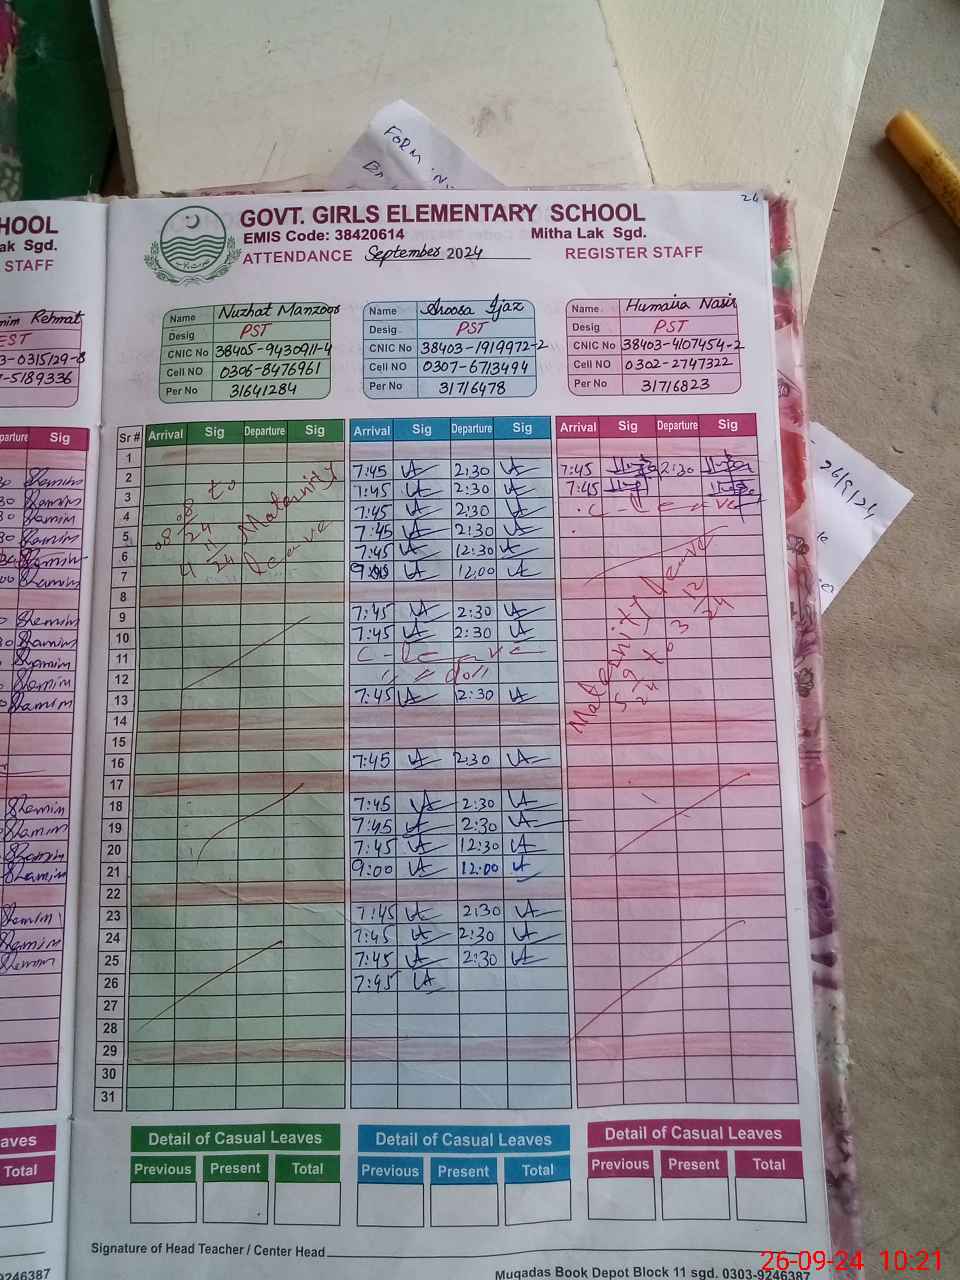 FORM
HOOL
ak Sgd.
STAFF
24
GOVT. GIRLS ELEMENTARY SCHOOL
EMIS Code: 38420614 Mitha Lak Sgd.
ATTENDANCE September 2024 REGISTER STAFF
mim Rehmat
EST
3-0315129-8
7-5189336
Name Nuzhat Manzoor
Desig PST
CNIC No 38405-9430911-4
Cell NO 0306-8476961
Per No 31641284
Name Aroosa Ijaz
Desig. PST
CNIC No 38403-1919972-2
Cell NO 0307-6713494
Per No 31716478
Name Humaira Nasir
Desig PST
CNIC No 38403-4107454-2
Cell NO 0302-2747322
Per No 31716823
parture Sig
Sr # Arrival Sig Departure Sig Arrival Sig Departure Sig Arrival Sig Departure Sig
1
2 7:45 2:30 7:45 2:30
3 7:45 2:30 7:45
4 7:45 2:30 C-leave
5 7:45 2:30
6 7:45 12:30
7 9:00 12:00
8
9 7:45 2:30
10 7:45 2:30
11 C-leave
12 // // do//
13 7:45 2:30
14
15
16 7:45 2:30
17
18 7:45 2:30
19 7:45 2:30
20 7:45 12:30
21 9:00 12:00
22
23 7:45 2:30
24 7:45 2:30
25 7:45 2:30
26 7:45
27
28
29
30
31
to
Maternity
leave
Maternity leave
Shamim
26/9/24
aves
Total
Detail of Casual Leaves
Previous Present Total
Detail of Casual Leaves
Previous Present Total
Detail of Casual Leaves
Previous Present Total
Signature of Head Teacher / Center Head
9246387
Muqadas Book Depot Block 11 sgd. 0303-9246387
26-09-24 10:21